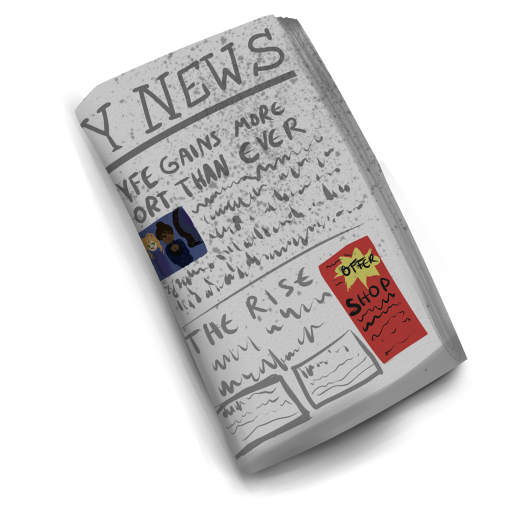 Y NEWS
Y.F.E GAINS MORE
ORT THAN EVER
THE RISE
OFFER
SHOP